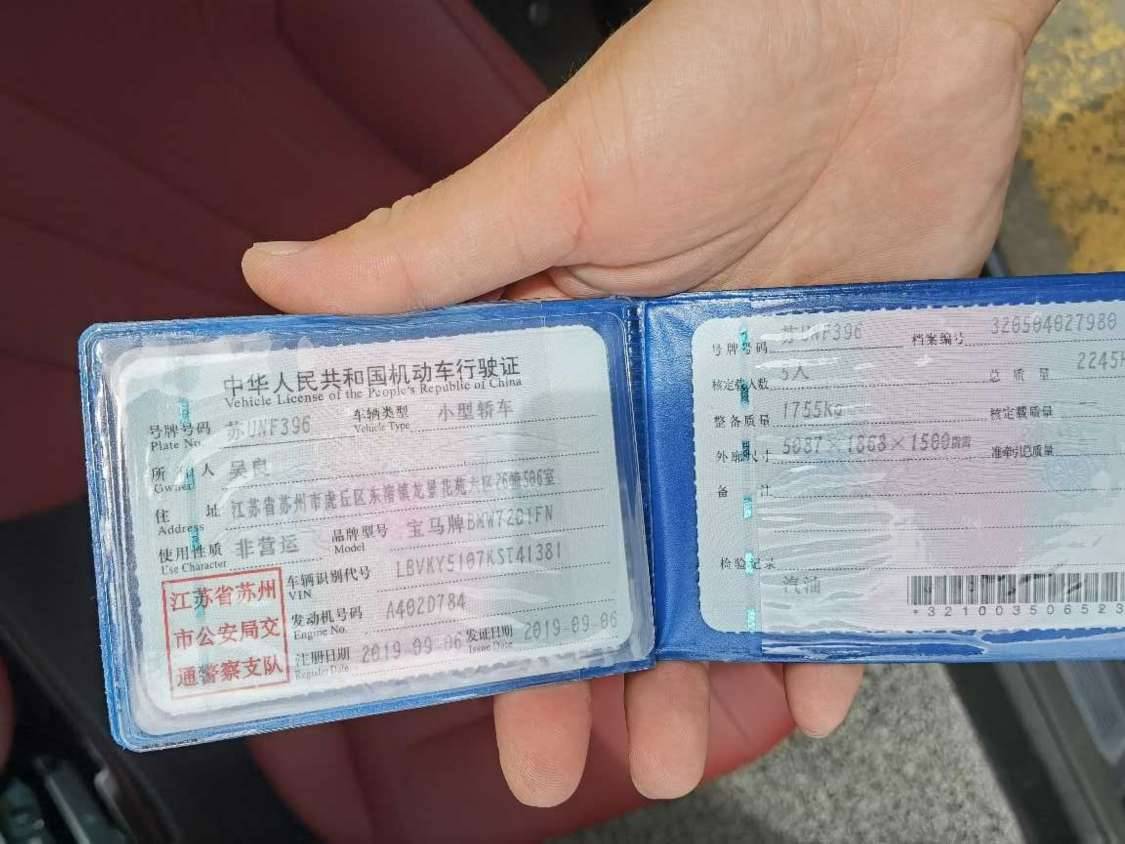 中华人民共和国机动车行驶证
Vehicle License of the People's Republic of China
号牌号码 苏UNF396 车辆类型 小型轿车
Plate No. Vehicle Type
所有人 吴良
Owner
住址 江苏省苏州市虎丘区东渚镇龙景花苑六区26幢506室
Address
使用性质 非营运 品牌型号 宝马牌BMW7201FN
Use Character Model
江苏省苏州
市公安局交
通警察支队
车辆识别代号 LBVKY5107KST41381
VIN
发动机号码 A402D784
Engine No.
注册日期 2019-09-06 发证日期 2019-09-06
Register Date Issue Date
号牌号码 苏UNF396 档案编号 320504027980
核定载人数 5人 总质量 2245
整备质量 1755Kg 核定载质量
外廓尺寸 5087×1868×1500 准牵引总质量
备注
检验记录
汽油
*321003506523